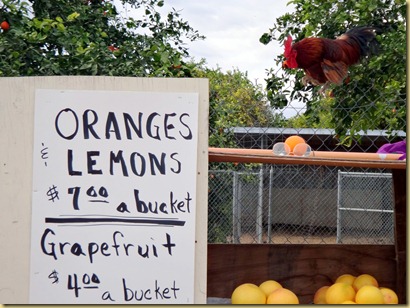 ORANGES
& LEMONS
$7.00 a bucket
Grapefruit
$4.00 a bucket